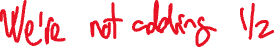 We're not adding 1/2